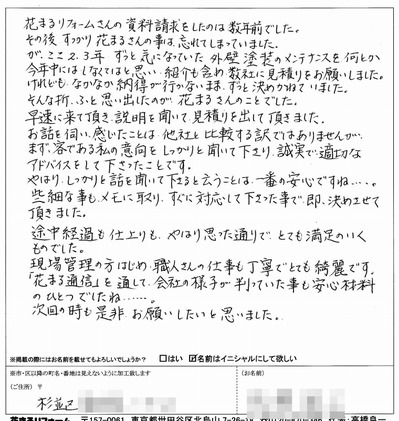 花まるリフォームさんの資料請求をしたのは数年前でした。
その後すっかり花まるさんの事は、忘れてしまっていました。
が、ここ2.3年ずっと気になっていた外壁塗装のメンテナンスを何とか
今年中にはしなくてはと思い、紹介も含め数社に見積りをお願いしました。
けれども、なかなか納得が行かないまま、ずっと決めかねていました。
そんな折、ふと思い出したのが花まるさんのことでした。
早速に来て頂き、説明を聞いて、見積りを出して頂きました。
お話を伺い、感じたことは、他社と比較する訳ではありませんが、
まず、客である私の意向をしっかりと聞いて下さり、誠実で適切な
アドバイスをして下さったことです。
やはり、しっかりと話を聞いて下さると云うことは、一番の安心ですね・・・。
些細な事も、メモに取り、すぐに対応して下さった事で、即、決めさせて
頂きました。
途中経過も仕上りも、やはり思った通りで、とても満足のいく
ものでした。
現場管理の方はじめ、職人さんの仕事も丁寧でとても綺麗です。
「花まる通信」を通して、会社の様子が判っていた事も安心材料
のひとつでしたね・・・・・・。
次回の時も是非お願いしたいと思いました。
※掲載の際にはお名前を載せてもよろしいでしょうか? □はい ☑名前はイニシャルにして欲しい
※市・区以降の町名・番地は見えないように加工致します
(ご住所) 〒
(お名前)
杉並区
花まるリフォーム 〒157-0061 東京都世田谷区北烏山7-26-